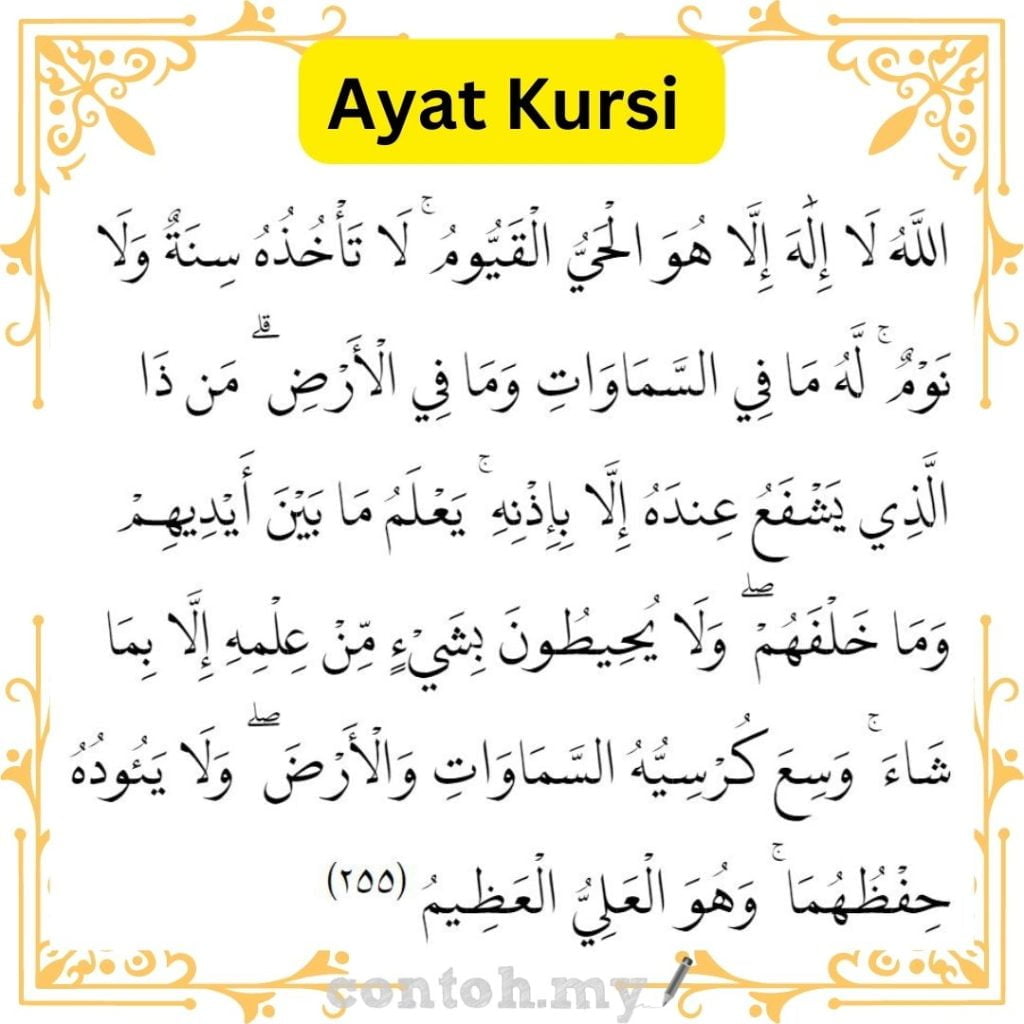 Ayat Kursi
اللَّهُ لَا إِلَٰهَ إِلَّا هُوَ الْحَيُّ الْقَيُّومُ ۚ لَا تَأْخُذُهُ سِنَةٌ وَلَا
نَوْمٌ ۚ لَّهُ مَا فِي السَّمَاوَاتِ وَمَا فِي الْأَرْضِ ۗ مَن ذَا
الَّذِي يَشْفَعُ عِندَهُ إِلَّا بِإِذْنِهِ ۚ يَعْلَمُ مَا بَيْنَ أَيْدِيهِمْ
وَمَا خَلْفَهُمْ ۖ وَلَا يُحِيطُونَ بِشَيْءٍ مِّنْ عِلْمِهِ إِلَّا بِمَا
شَاءَ ۚ وَسِعَ كُرْسِيُّهُ السَّمَاوَاتِ وَالْأَرْضَ ۖ وَلَا يَئُودُهُ
حِفْظُهُمَا ۚ وَهُوَ الْعَلِيُّ الْعَظِيمُ (٢٥٥)
contoh.my